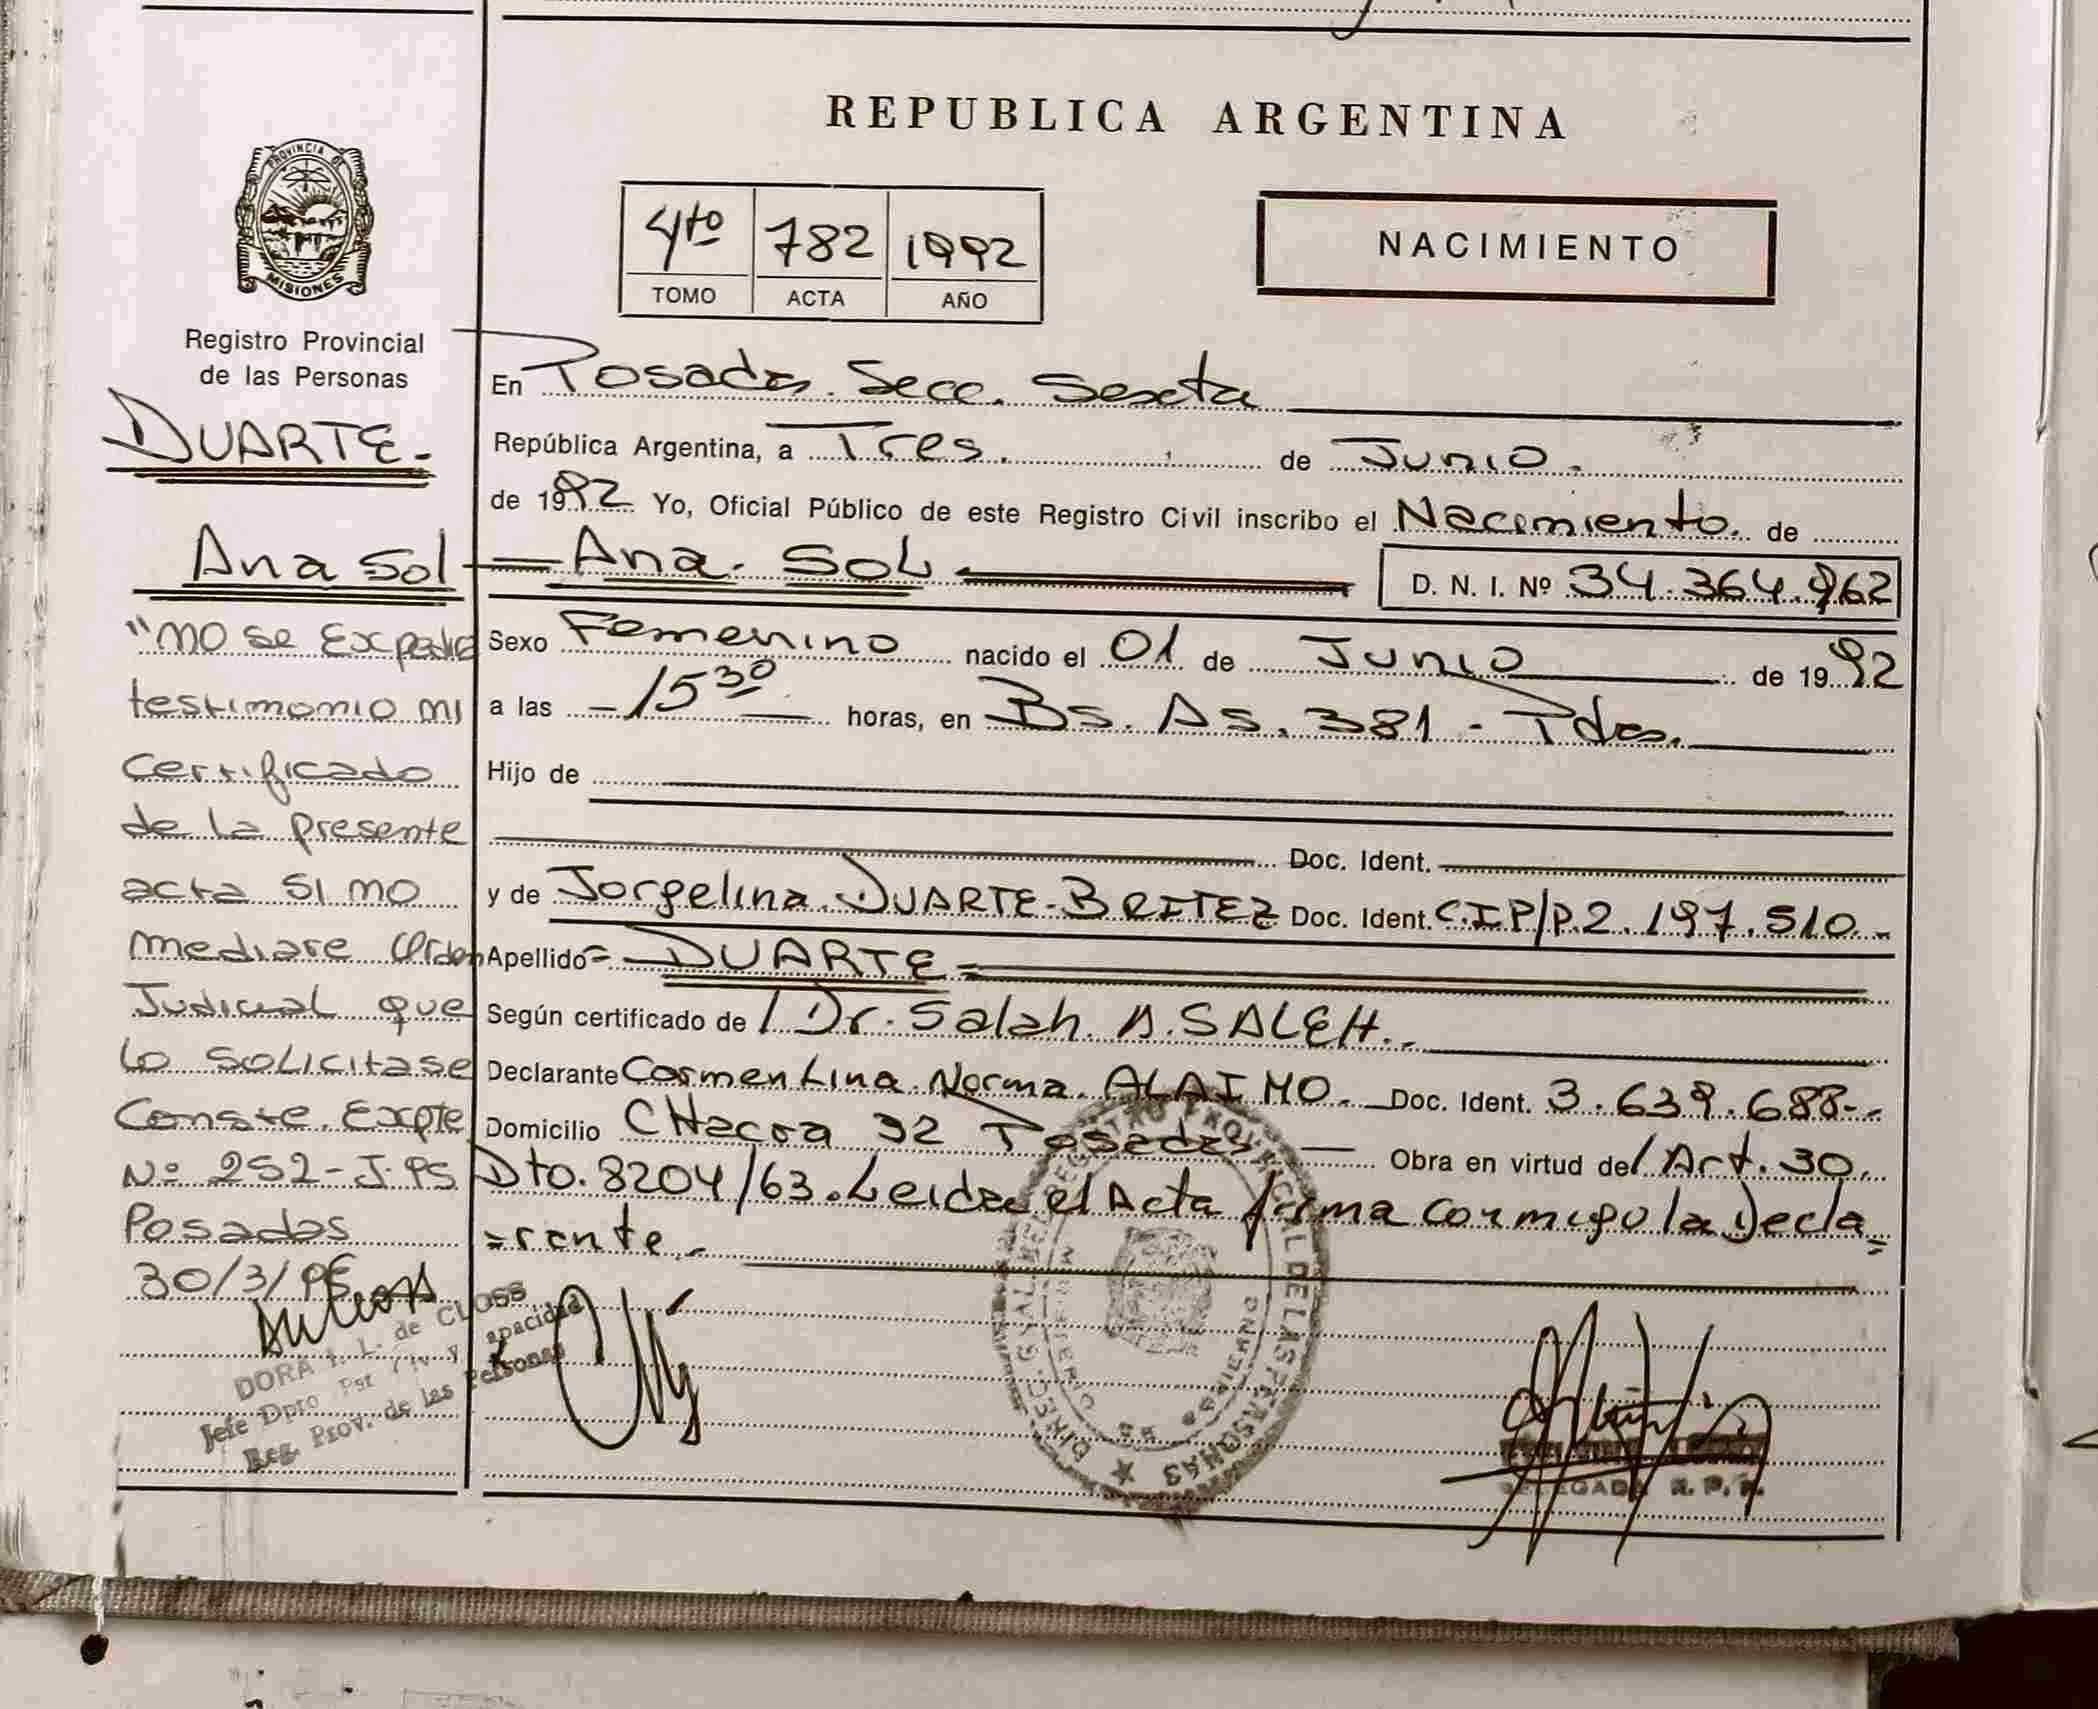 REPUBLICA ARGENTINA
PROVINCIA DE
MISIONES
Registro Provincial
de las Personas
4to 782 1992
TOMO ACTA AÑO
NACIMIENTO
DUARTE.-
Ana Sol
"no se Expedira
testimonio ni
certificado
de la presente
acta si no
mediare Orden
Judicial que
lo solicitase
Conste. Expte
Nº 252-J.PS
Posadas
30/3/
DORA I. L. de CLOSS
Jefe Dpto y apacidad
Reg. Prov. de las Personas
En Posadas. Secc. Sexta
República Argentina, a Tres. de Junio.
de 1992 Yo, Oficial Público de este Registro Civil inscribo el Nacimiento. de
Ana. SOL. D. N. I. Nº 34.364.962
Sexo Femenino nacido el 01 de Junio de 1992
a las -15 30 horas, en Bs. As. 381 - Pdas.
Hijo de
Doc. Ident.
y de Jorgelina. DUARTE-BRITEZ Doc. Ident. C.IP/P.2.197.510.-
Apellido= DUARTE=
Según certificado de / Dr. Salah. A. SALEH.-
Declarante Carmen Lina. Norma. ALAIMO. Doc. Ident. 3.639.688-.
Domicilio CHacra 32 Posadas Obra en virtud de / Art. 30.
Dto. 8204/63. Leida el Acta firma conmigo la Decla=
=rante.-
DIREC. GRAL. REGISTRO PROVINCIAL DE LAS PERSONAS
DELEGADA R. P. P.